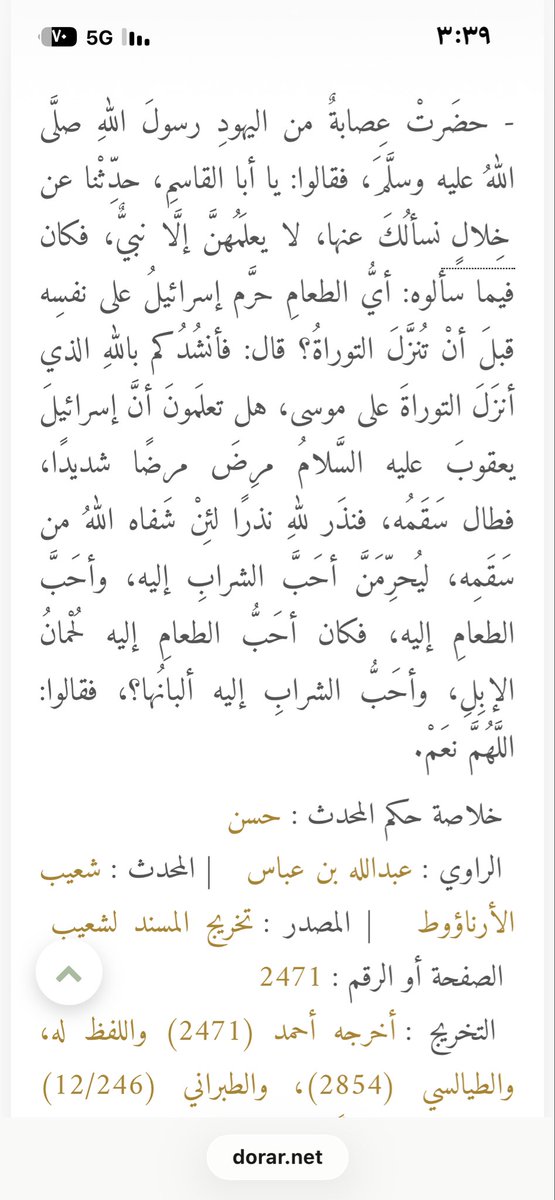 ٣:٣٩
5G
٧٠
- حضَرتْ عِصابةٌ من اليهودِ رسولَ اللهِ صلَّى
اللهُ عليه وسلَّمَ، فقالوا: يا أبا القاسِمِ، حدِّثْنا عن
خِلالٍ نسألُكَ عنها، لا يعلَمُهنَّ إلَّا نبيٌّ، فكان
فيما سألوه: أيُّ الطعامِ حرَّم إسرائيلُ على نفسِه
قبلَ أنْ تُنزَّلَ التوراةُ؟ قال: فأنشُدُكم باللهِ الذي
أنزَلَ التوراةَ على موسى، هل تعلَمونَ أنَّ إسرائيلَ
يعقوبَ عليه السَّلامُ مرِضَ مرضًا شديدًا،
فطال سَقَمُه، فنذَر للهِ نذرًا لئِنْ شفاه اللهُ من
سَقَمِه، ليُحرِّمَنَّ أحَبَّ الشرابِ إليه، وأحَبَّ
الطعامِ إليه، فكان أحَبُّ الطعامِ إليه لُحْمانُ
الإبِلِ، وأحَبُّ الشرابِ إليه ألبانُها؟، فقالوا:
اللَّهُمَّ نعَمْ.
خلاصة حكم المحدث : حسن
الراوي : عبدالله بن عباس | المحدث : شعيب
الأرناؤوط | المصدر : تخريج المسند لشعيب
الصفحة أو الرقم : 2471
التخريج : أخرجه أحمد (2471) واللفظ له،
والطيالسي (2854)، والطبراني (12/246)
dorar.net